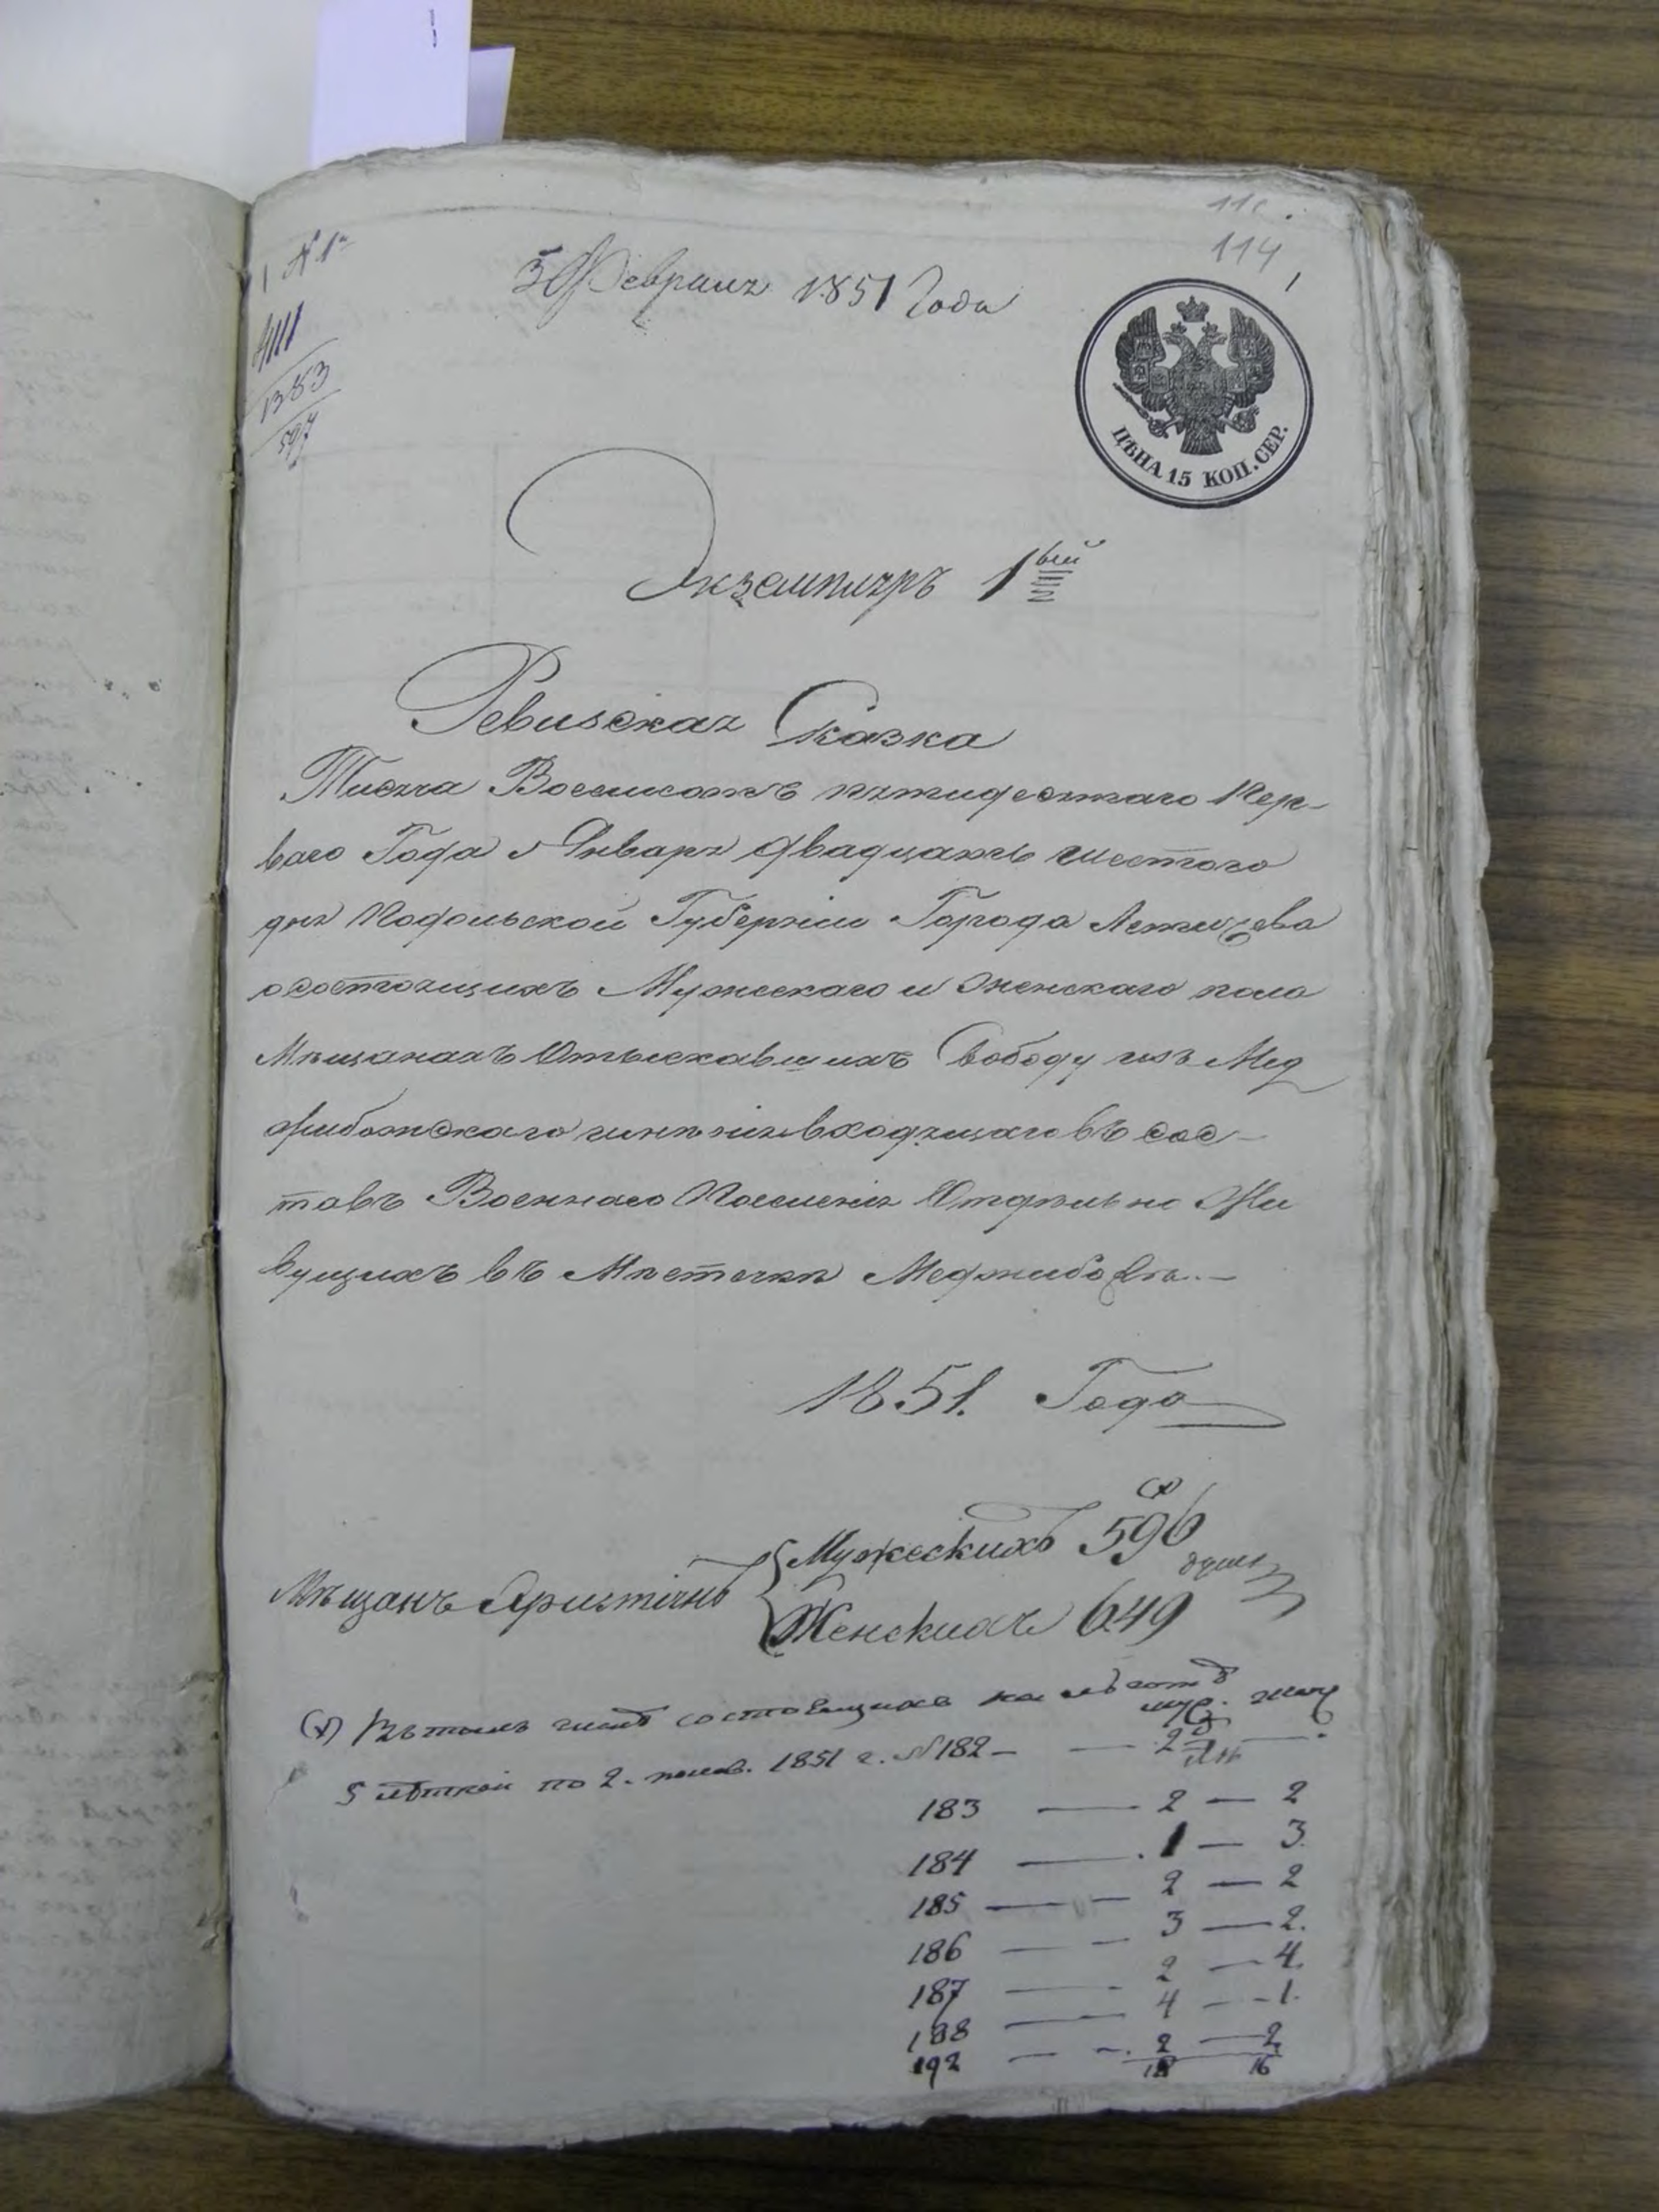 116.
114
№ 1й
4111
1383
597
5 Февраля 1851 Года
ЦѢНА 15 КОП. СЕР.
Экземпляръ 1ый
Ревизская Сказка
Тысяча Восемьсотъ пятидесятаго Пер-
ваго Года Января двадцать шестого
дня Подольской Губерніи Города Летичева
о состоящихъ Мужескаго и Женскаго пола
Мѣщанахъ Отыскавшихъ Свободу изъ Мед
жибожскаго имѣнія входящаго въ сос-
тавъ Военнаго Поселенія Отдѣльно Жи
вущихъ въ Мѣстечкѣ Меджибожѣ.–
1851. Года
(х)
Мужескихъ 596
душъ
Мѣщанъ Христіянъ
Женскихъ 649
(х) Въ томъ числѣ состоящихъ на льготѣ
муж. жен
5 лѣтней по 2. полов. 1851 г. №182 — — 2 — .
183 — 2 — 2
184 — 1 — 3.
185 — — 2 — 2
186 — — 3 — 2.
187 — 2 — 4.
188 — 4 — 1.
192 — — 2 — 2
18 16